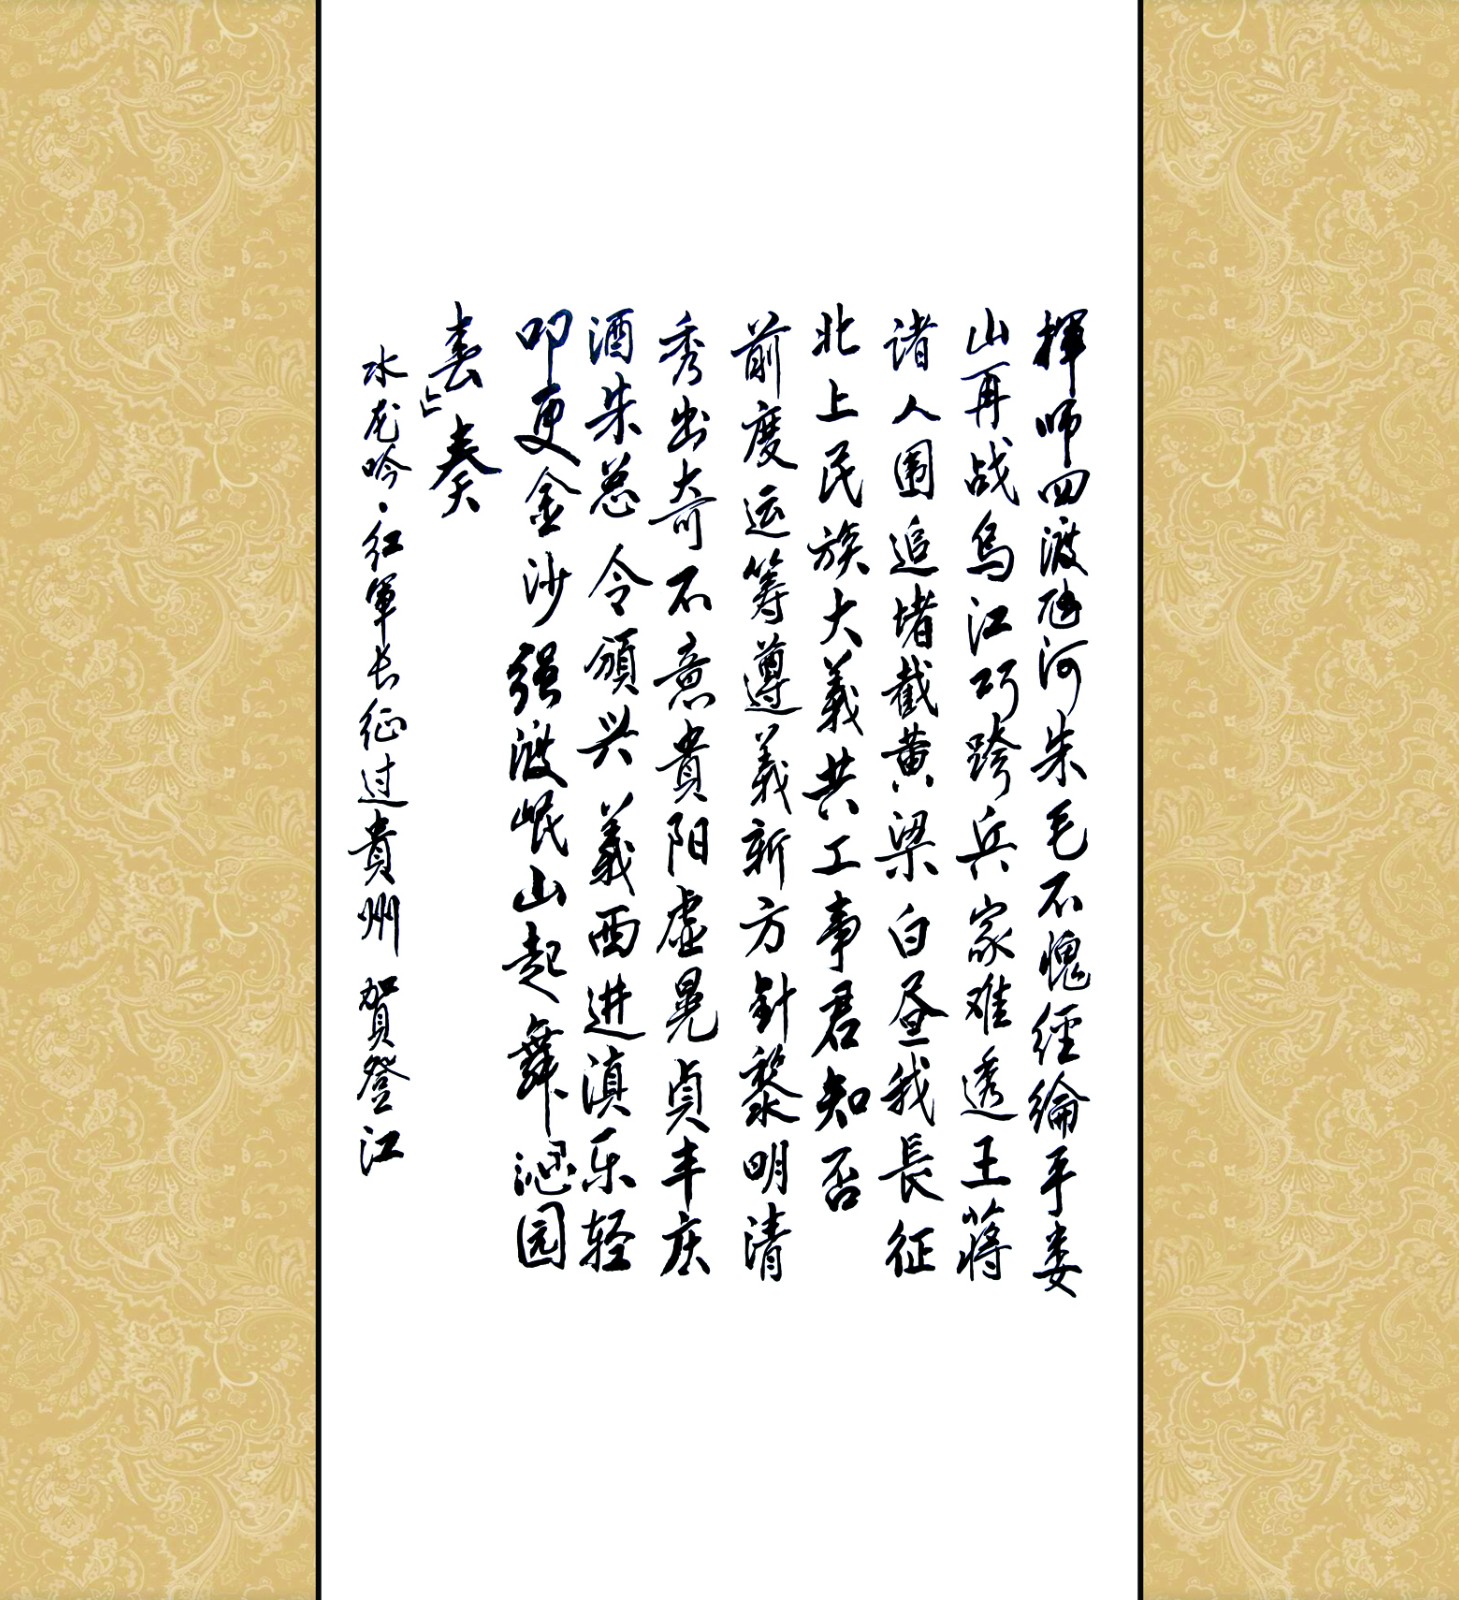 揮师四渡赤河朱毛不愧經綸手娄
山再战乌江巧跨兵家难透王蒋
诸人围追堵截黄梁白昼我長征
北上民族大義共工事君知否
前度运筹遵義新方針黎明清
秀出奇不意貴阳虚晃贞丰庆
酒朱总令頒兴義西进滇乐轻
叩更金沙强渡岷山起舞沁园
春奏
水龙吟·红軍长征过貴州 贺登江